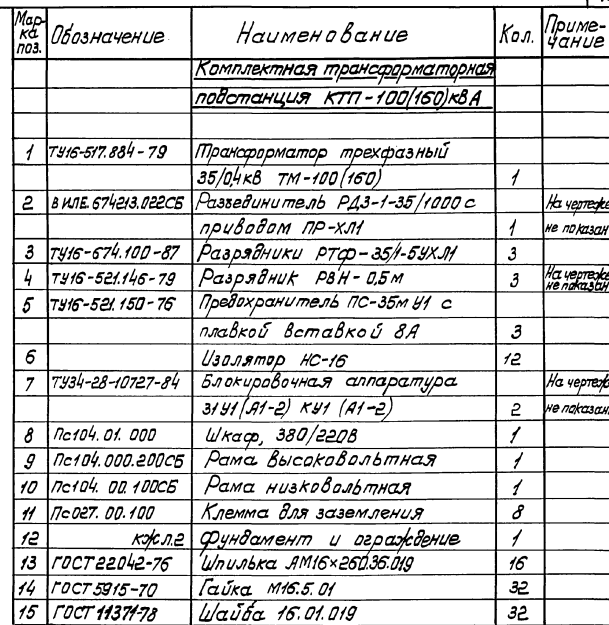 Мар- ка поз. Обозначение Наименование Кол. Приме- чание
Комплектная трансформаторная
подстанция КТП-100(160)кВА
1 ТУ16-517.884-79 Трансформатор трехфазный
35/0,4кВ ТМ-100(160) 1
2 ВИЛЕ.674213.022СБ Разъединитель РДЗ-1-35/1000 с На чертеже
приводом ПР-ХЛ1 1 не показан
3 ТУ16-674.100-87 Разрядники РТФ-35/1-5УХЛ1 3
4 ТУ16-521.146-79 Разрядник РВН-0,5м 3 На чертеже не показан
5 ТУ16-521.150-76 Предохранитель ПС-35м У1 с
плавкой вставкой 8А 3
6 Изолятор НС-16 12
7 ТУ34-28-10727-84 Блокировочная аппаратура На чертеже
31У1(А1-2) КУ1 (А1-2) 2 не показан
8 Пс104.01.000 Шкаф, 380/220В 1
9 Пс104.000.200СБ Рама высоковольтная 1
10 Пс104.00.100СБ Рама низковольтная 1
11 Пс027.00.100 Клемма для заземления 8
12 кж л.2 Фундамент и ограждение 1
13 ГОСТ 22042-76 Шпилька АМ16×260.36.019 16
14 ГОСТ 5915-70 Гайка М16.5.01 32
15 ГОСТ 11371-78 Шайба 16.01.019 32